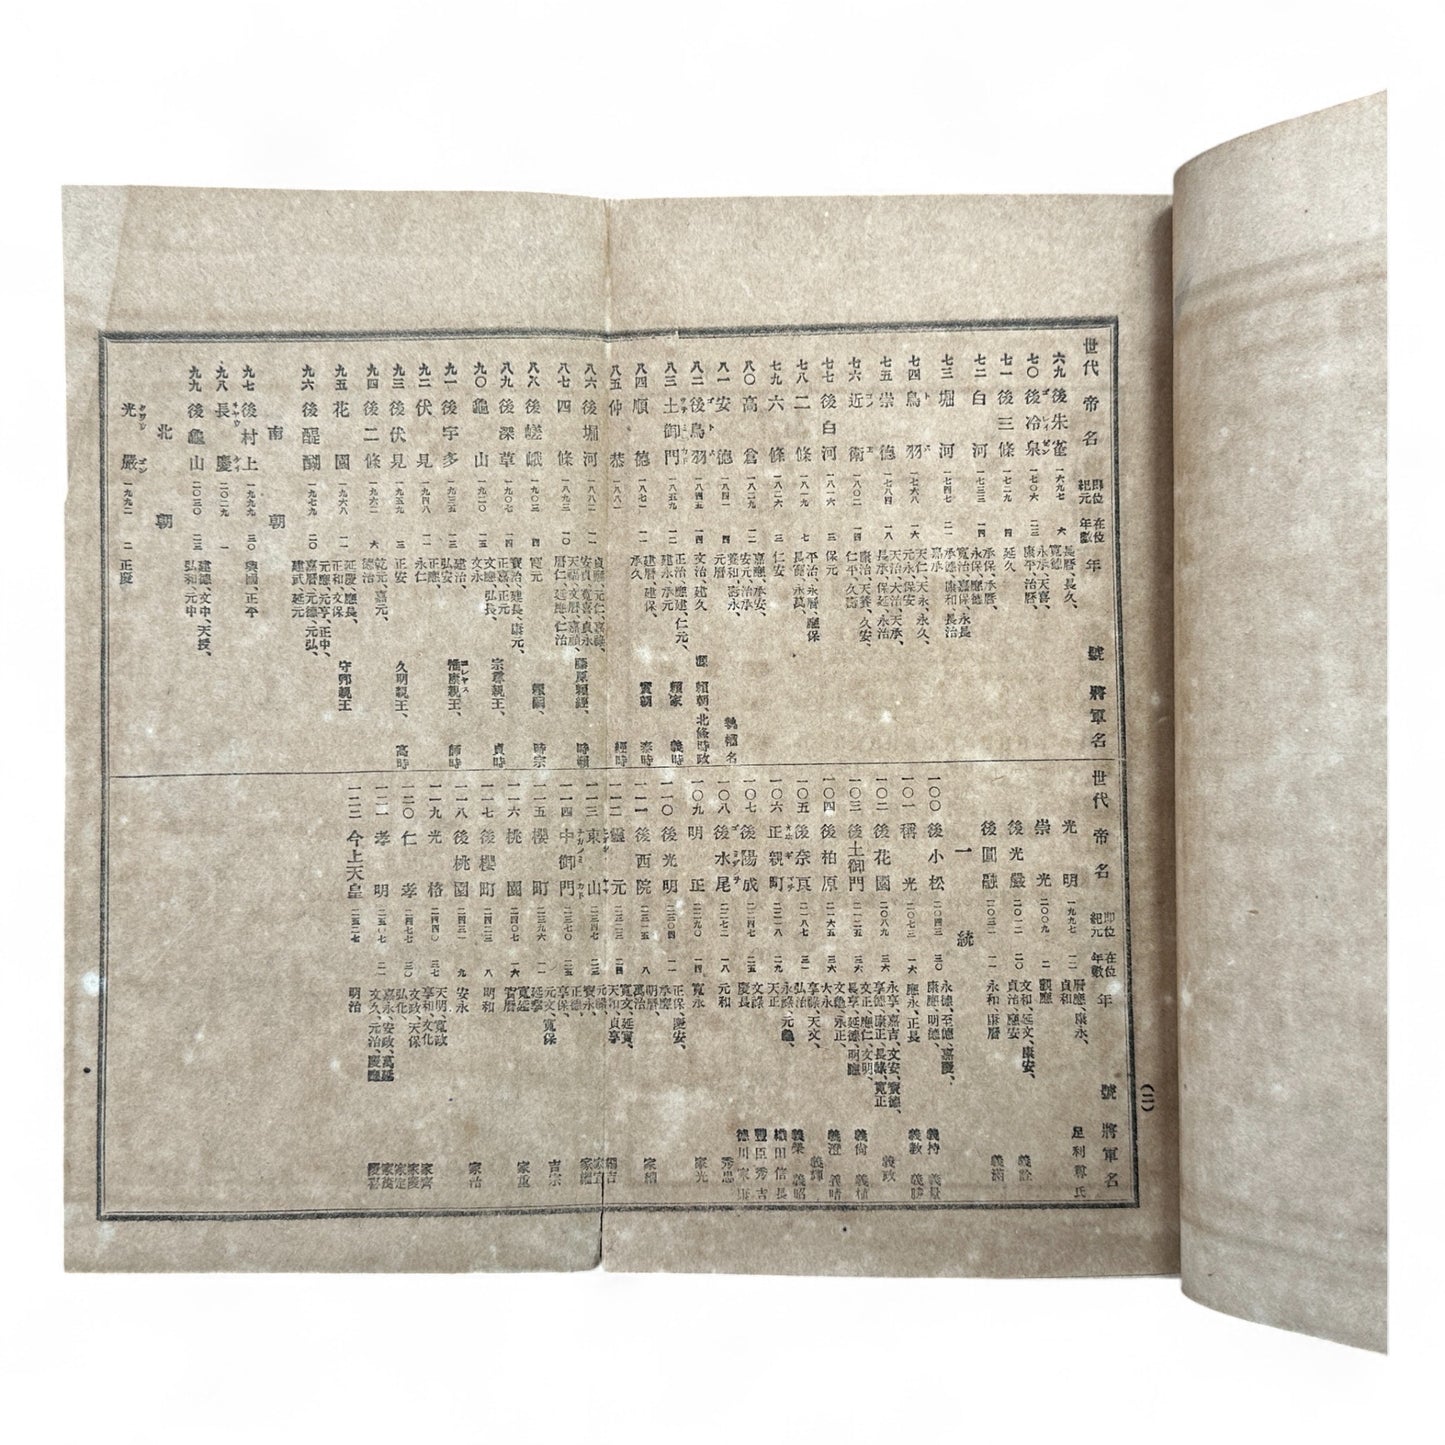 世代 帝名 即位紀元 在位年數 年號 將軍名
六九 後朱雀 一六九七 六 長曆、長久、寬德
七〇 後冷泉 一七〇六 二三 永承、天喜、康平、治曆、
七一 後三條 一七二九 四 延久
七二 白河 一七三三 一四 承保、承曆、永保、應德
七三 堀河 一七四七 二一 寬治、嘉保、永長、承德、康和、長治、嘉承
七四 鳥羽 一七六八 一六 天仁、天永、永久、元永、保安
七五 崇德 一七八四 一八 天治、大治、天承、長承、保延、永治
七六 近衞 一八〇二 一四 康治、天養、久安、仁平、久壽
七七 後白河 一八一六 三 保元
七八 二條 一八一九 七 平治、永曆、應保、長寬、永萬、
七九 六條 一八二六 三 仁安
八〇 高倉 一八二九 一二 嘉應、承安、安元、治承
八一 安德 一八四一 四 養和、壽永、元曆 執權名
八二 後鳥羽 一八四五 一四 文治、建久 源賴朝、北條時政
八三 土御門 一八五九 一二 正治、應建仁元、建永、承元 賴家 義時
八四 順德 一八七一 一一 建曆、建保、承久 實朝 泰時
八五 仲恭 一八八一 經時
八六 後堀河 一八八二 一一 貞應、元仁、嘉祿、安貞、寬喜、貞永 藤原賴經、時賴
八七 四條 一八九三 一〇 天福、文曆、嘉禎、曆仁、延應、仁治
八八 後嵯峨 一九〇三 四 寬元 賴嗣、時宗
八九 後深草 一九〇七 一三 寶治、建長、康元、正嘉、正元 宗尊親王、貞時
九〇 龜山 一五 文應、弘長、文永
九一 後宇多 一九三五 一三 建治、弘安 惟康親王、師時
九二 伏見 一九四八 一一 正應、永仁
九三 後伏見 三 正安 久明親王、高時
九四 後二條 六 乾元、嘉元、德治
九五 花園 一九六八 一一 延慶、應長、正和、文保 守邦親王
九六 後醍醐 一九七九 二〇 元應、元亨、正中、嘉曆、元德、元弘、建武、延元
南朝
九七 後村上 一九九九 三〇 興國、正平
九八 長慶 二〇二九 一
九九 後龜山 二〇三〇 二三 建德、文中、天授、弘和、元中
北朝
光嚴 一九九一 二 正慶
世代 帝名 即位紀元 在位年數 年號 將軍名
光明 一九九七 一二 曆應、康永、貞和 足利尊氏
崇光 二〇〇九 二 觀應
後光嚴 二〇一二 二〇 文和、延文、康安、貞治、應安 義詮
後圓融 二〇三一 一一 永和、康曆 義滿
一統
一〇〇 後小松 二〇四三 三〇 永德、至德、嘉慶、康應、明德、 義持 義量
一〇一 稱光 二〇七三 一六 應永、正長 義教 義勝
一〇二 後花園 二〇八九 三六 永享、嘉吉、文安、寶德、享德、康正、長祿、寬正 義政
一〇三 後土御門 二一二五 三六 文正、應仁、文明、長享、延德、明應 義尚 義稙
一〇四 後柏原 二一六五 二六 文龜、永正、大永 義澄 義晴
一〇五 後奈良 二一八七 三一 享祿、天文、弘治 義輝
一〇六 正親町 二二一八 二九 永祿、元龜、天正 義榮 義昭 織田信長
一〇七 後陽成 二二四七 文祿、慶長 豐臣秀吉 德川家康
一〇八 後水尾 二二七二 一八 元和 秀忠
一〇九 明正 二二九〇 一四 寬永 家光
一一〇 後光明 二三〇四 一一 正保、慶安、承應
一一一 後西院 二三一五 八 明曆、萬治 家綱
一一二 靈元 二三二三 二四 寬文、延寶、天和、貞享 綱吉
一一三 東山 二三四七 二三 元祿、寶永、 家宣
一一四 中御門 二三七〇 二五 正德、享保、 家繼
一一五 櫻町 二三九六 一一 元文、寬保、延享 吉宗
一一六 桃園 二四〇七 一六 寬延、寶曆 家重
一一七 後櫻町 二四二三 八 明和
一一八 後桃園 二四三一 九 安永 家治
一一九 光格 二四四〇 三七 天明、寬政、享和、文化 家齊
一二〇 仁孝 二四七七 三〇 文政、天保、弘化、 家慶
一二一 孝明 二五〇七 二一 嘉永、安政、萬延、文久、元治、慶應 家定 家茂 慶喜
一二二 今上天皇 二五二七 明治
(二)